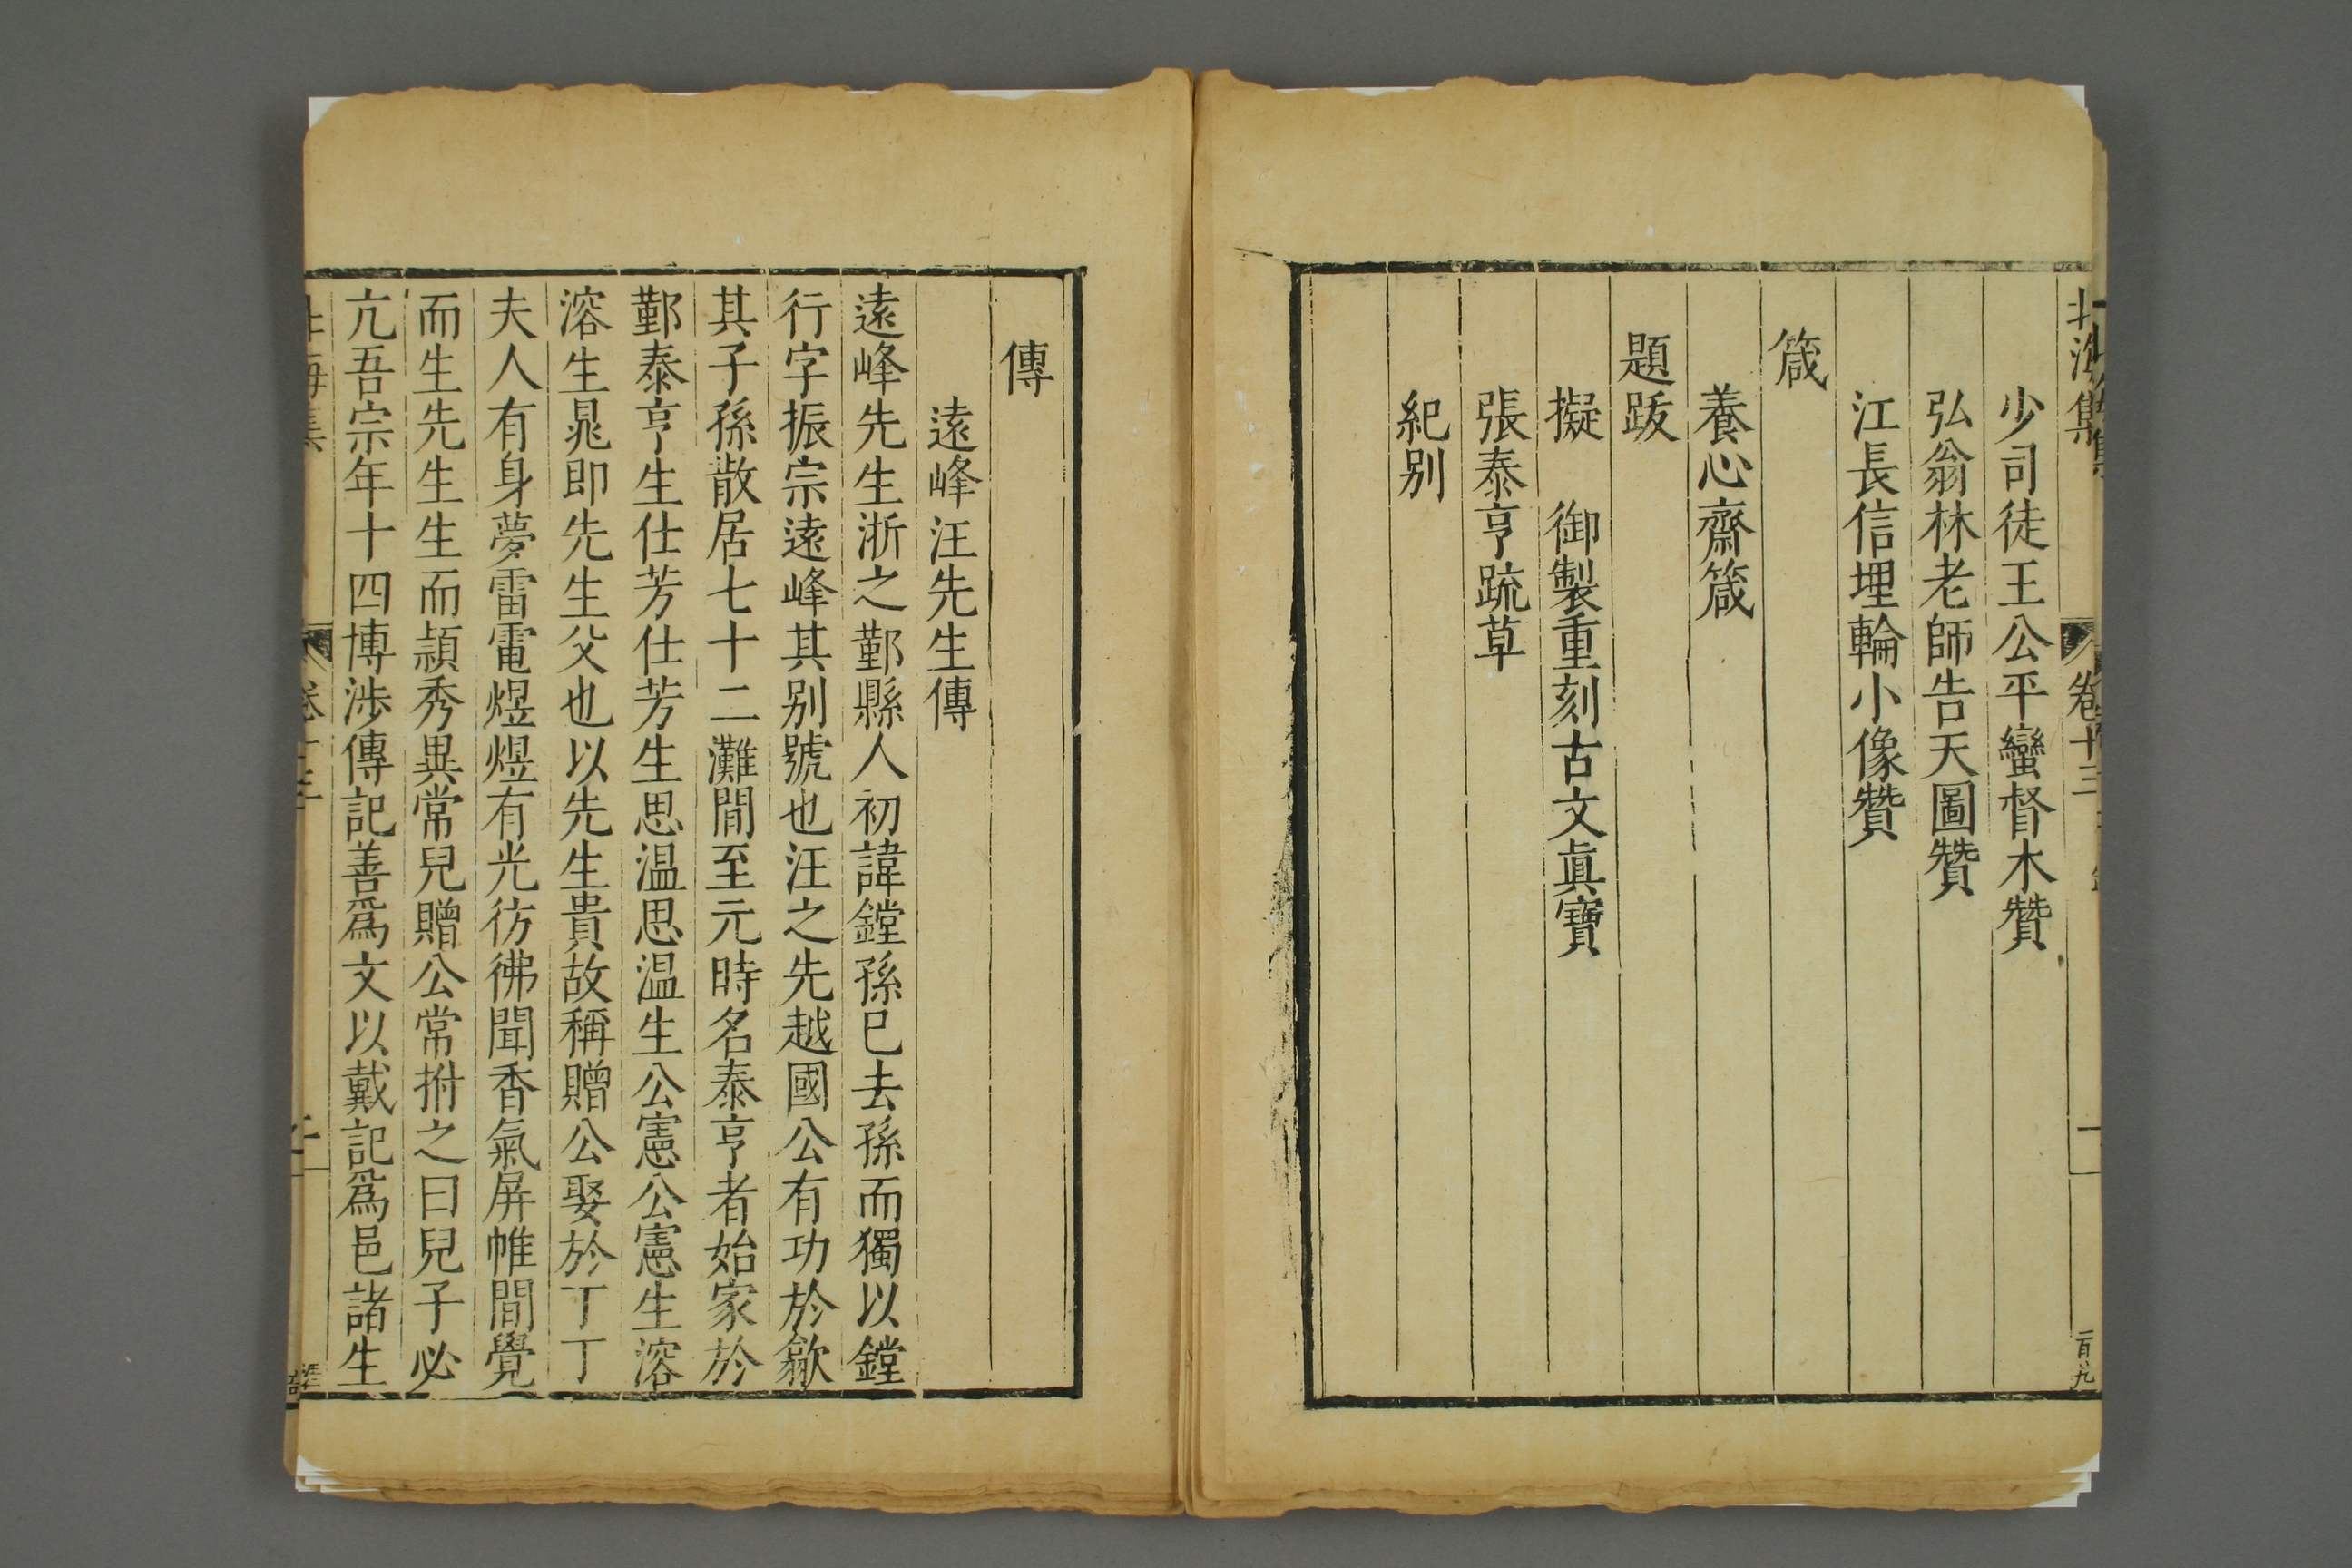 北海集 卷十三 一 百九
少司徒王公平蠻督木贊
弘翁林老師告天圖贊
江長信埋輪小像贊
箴
養心齋箴
題跋
擬 御製重刻古文眞寶
張泰亨疏草
紀别
傳
遠峰汪先生傳
遠峰先生浙之鄞縣人初諱鏜孫巳去孫而獨以鏜
行字振宗遠峰其别號也汪之先越國公有功於歙
其子孫散居七十二灘間至元時名泰亨者始家於
鄞泰亨生仕芳仕芳生思温思温生公憲公憲生溶
溶生晁即先生父也以先生貴故稱贈公娶於丁丁
夫人有身夢雷電煜煜有光彷彿聞香氣屏帷間覺
而生先生生而頴秀異常兒贈公常拊之曰兒子必
亢吾宗年十四博渉傳記善爲文以戴記爲邑諸生